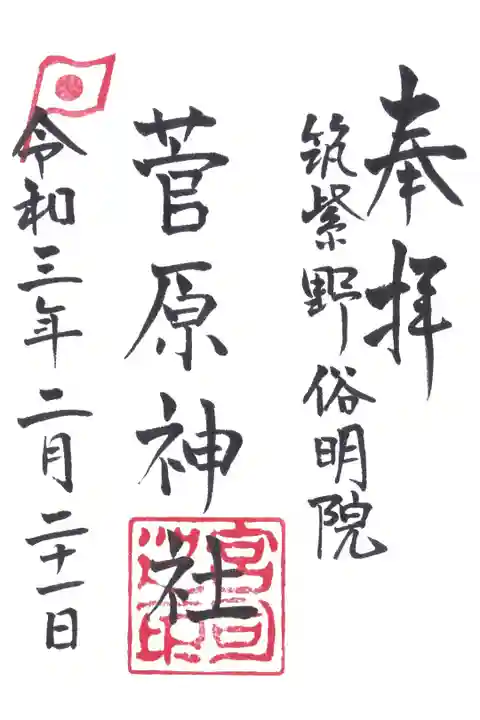 奉拝
筑紫野俗明院
菅原神社
令和三年二月二十一日